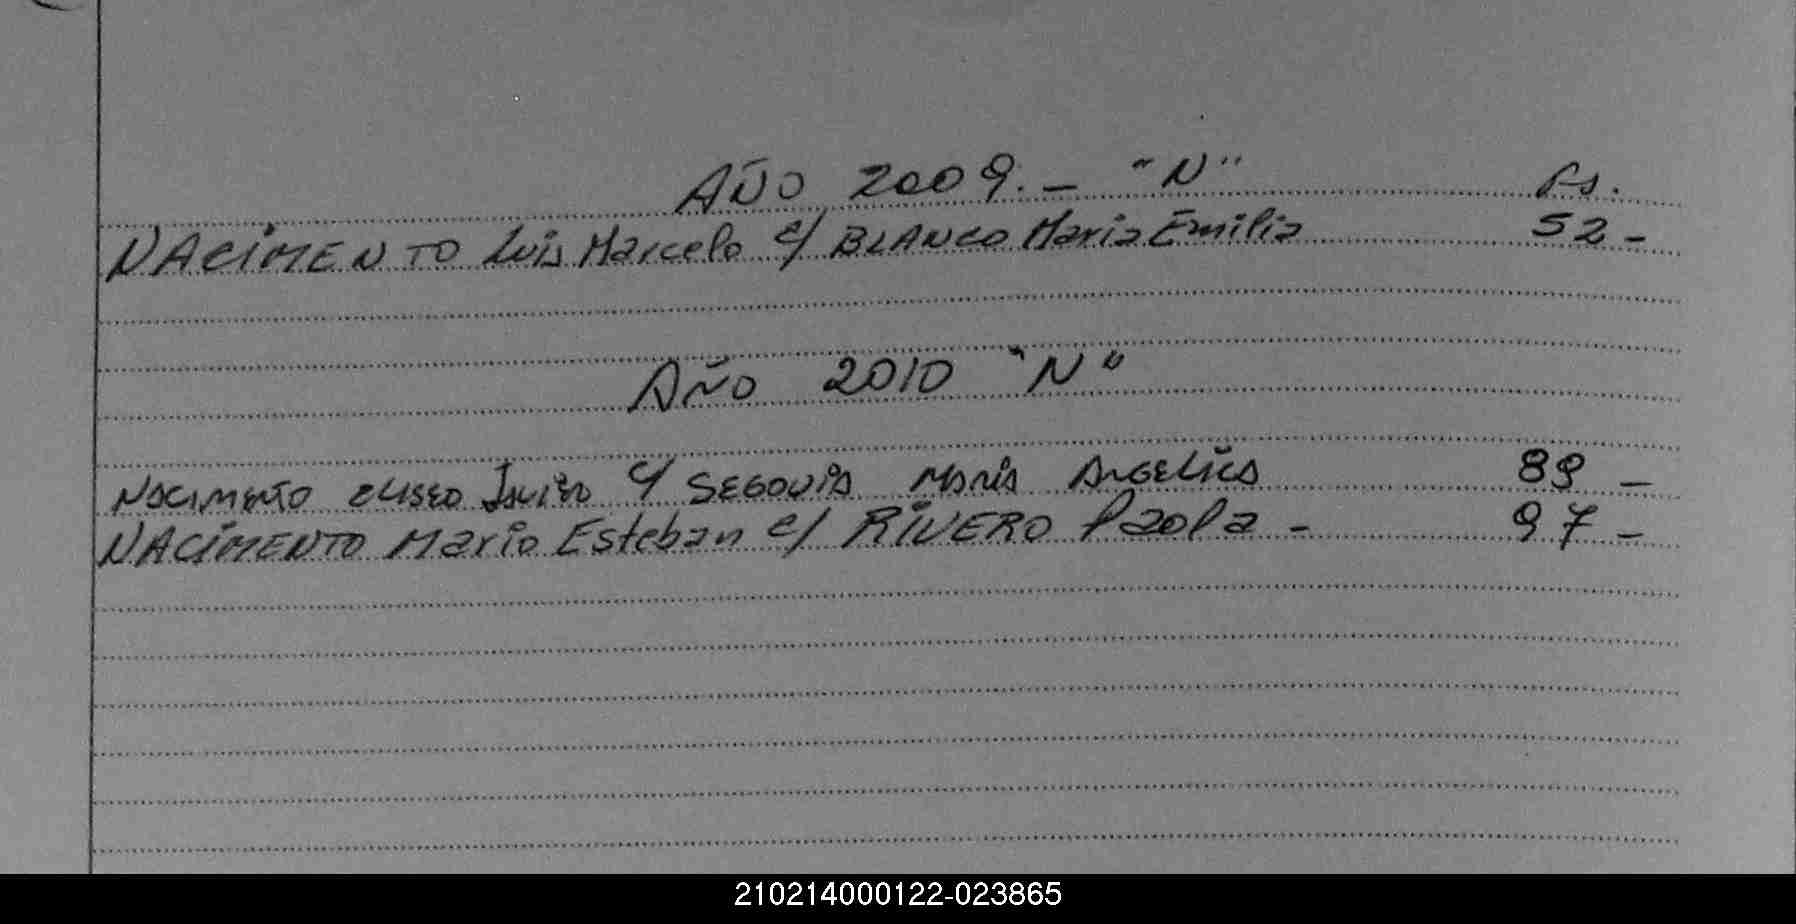 AÑO 2009.- "N" Fs.
NACIMENTO Luis Marcelo c/ BLANCO Maria Emilia 52-
AÑO 2010 "N"
NACIMENTO ELISEO JAVIER c/ SEGOVIA MARIA ANGELICA 89-
NACIMENTO Mario Esteban c/ RIVERO Paola - 97-
210214000122-023865